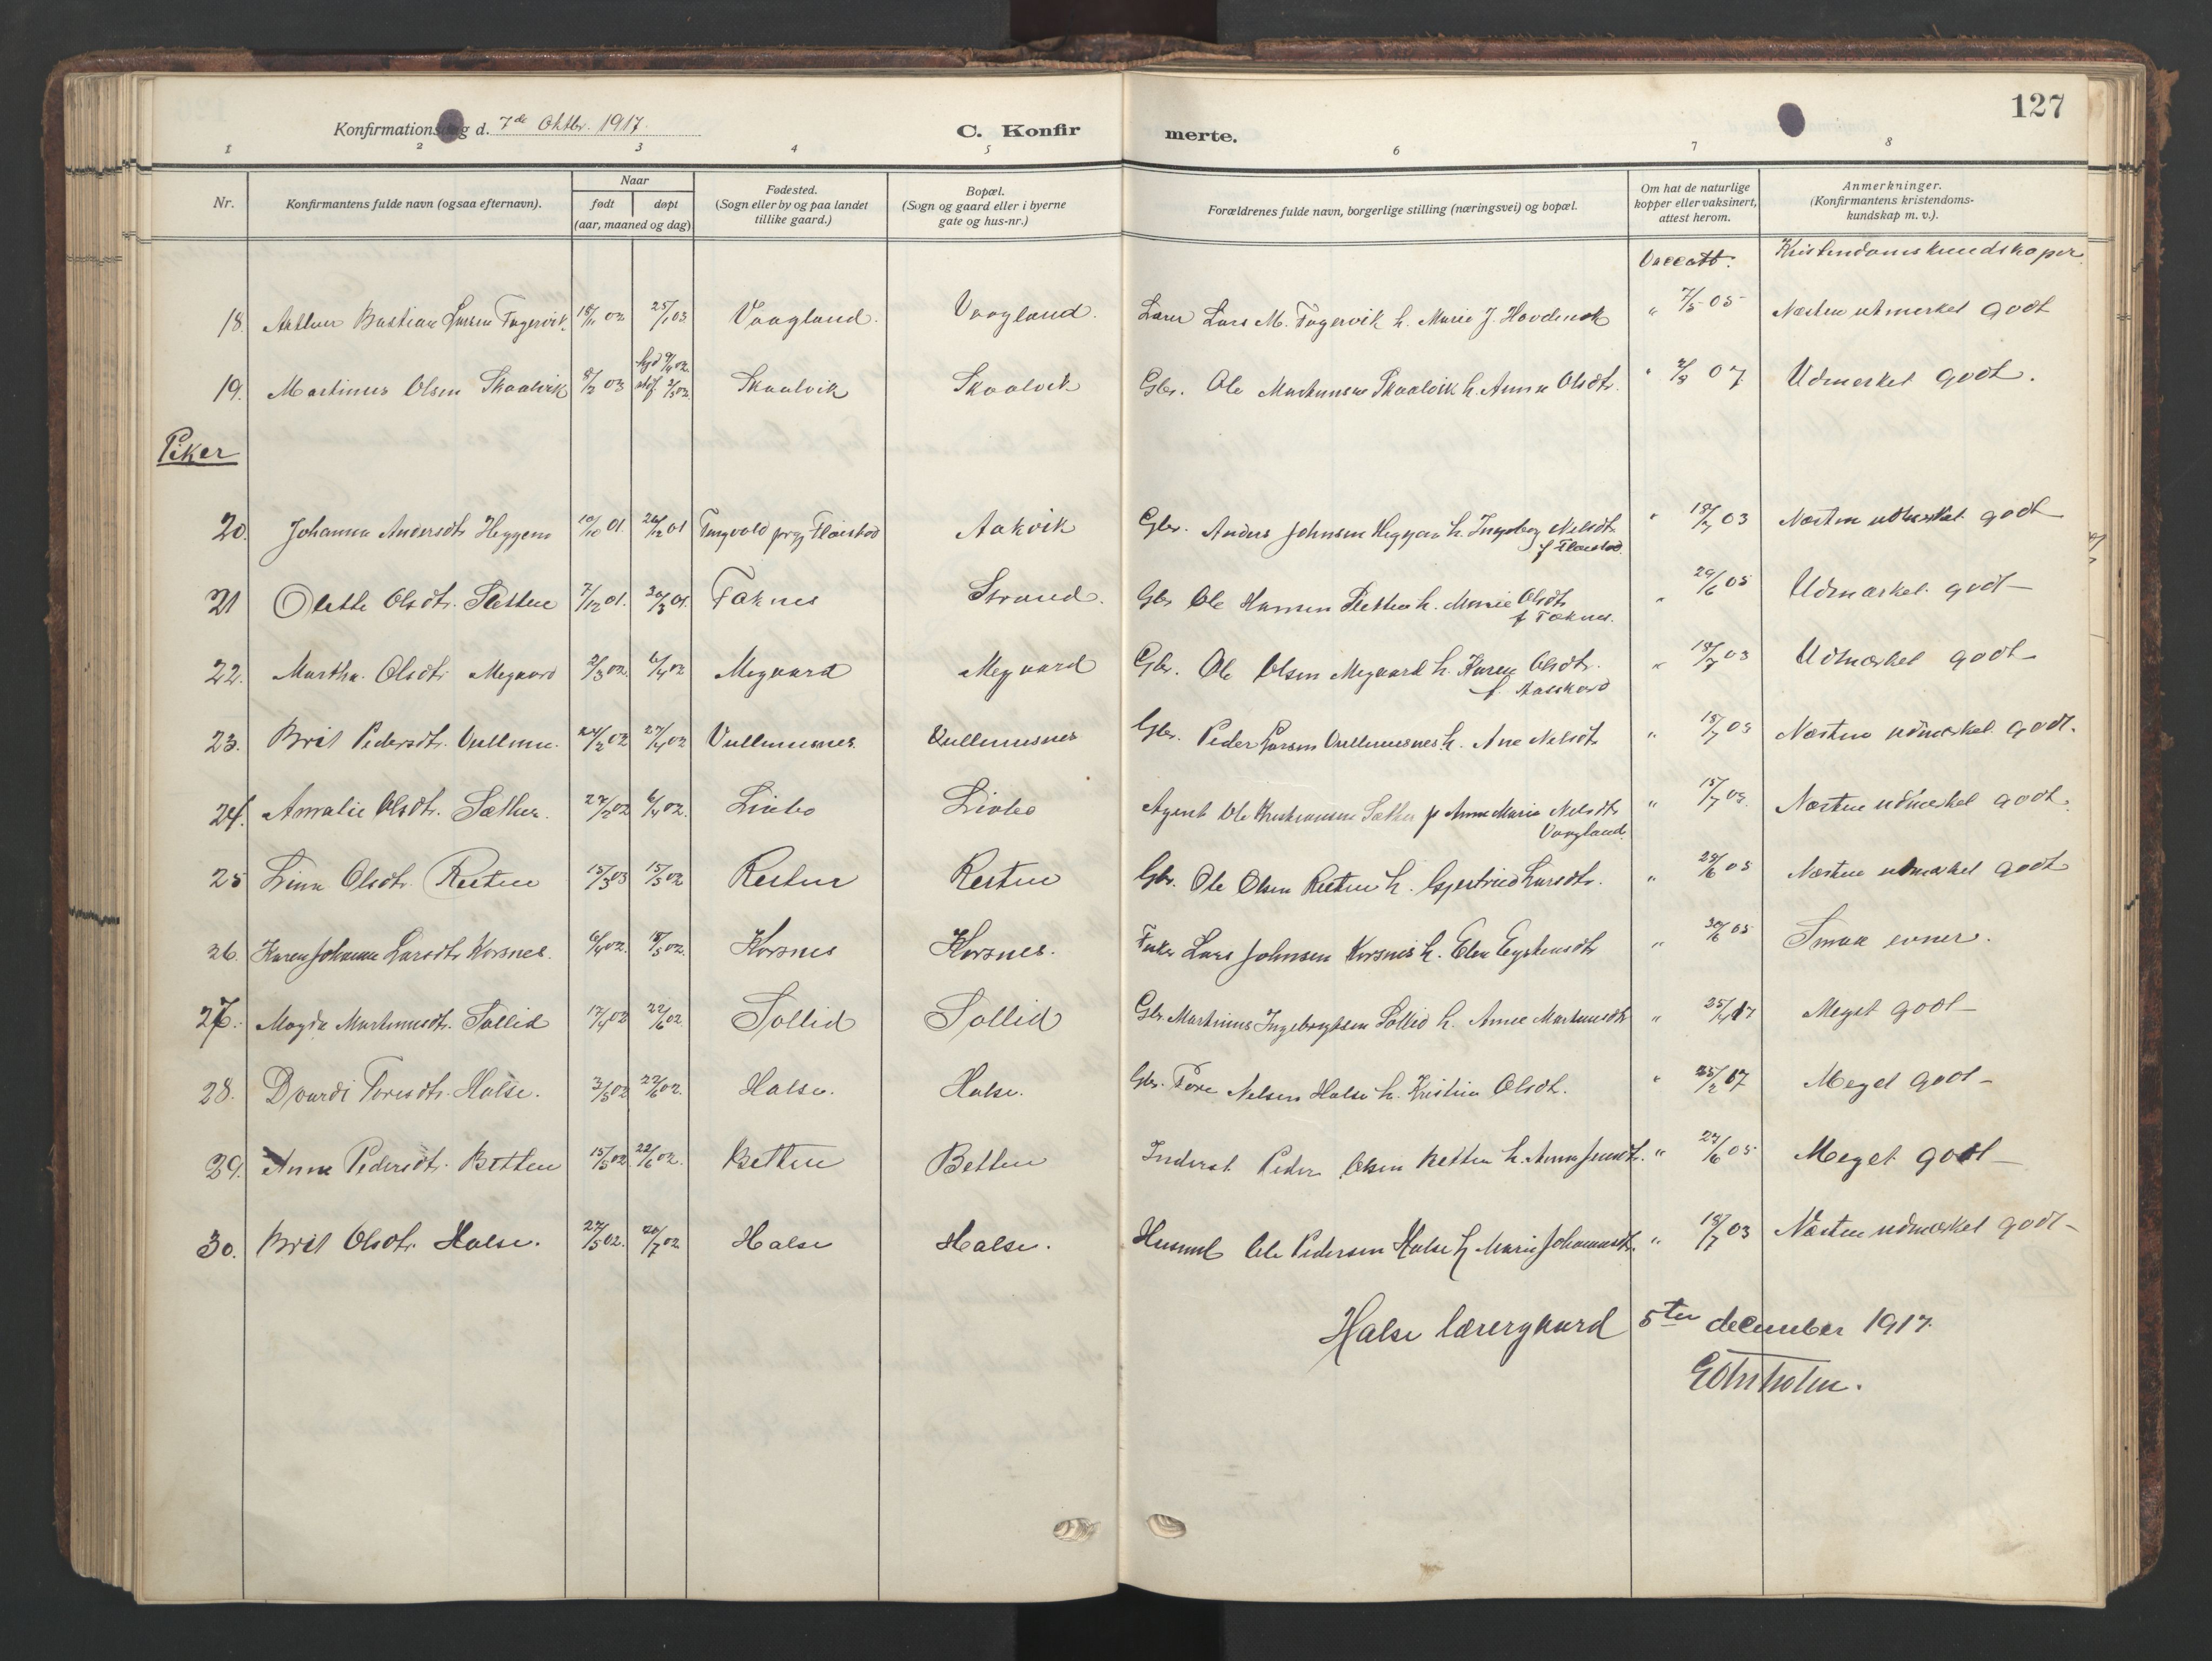 127
Konfirmationsdag d. 7de Oktbr. 1917.
C. Konfirmerte.
1 2 3 4 5 6 7 8
Nr.
Konfirmantens fulde navn (ogsaa efternavn).
Naar
født døpt
(aar, maaned og dag)
Fødested.
(Sogn eller by og paa landet
tillike gaard.)
Bopæl.
(Sogn og gaard eller i byerne
gate og hus-nr.)
Forældrenes fulde navn, borgerlige stilling (næringsvei) og bopæl.
Om hat de naturlige
kopper eller vaksinert,
attest herom.
Anmerkninger.
(Konfirmantens kristendoms-
kundskap m. v.).
Vaccatt. Kristendomskundskaper
18. Arthur Bastian Larsen Fagervik. 18/11 02 25/1 03 Vaagland. Vaagland. Lærer Lars M. Fagervik h. Marie J. Hovdenak " 7/5 05 Næsten utmerket godt
19. Martinus Olsen Skaalvik 8/2 03 Skaalvik Skaalvik Gbr. Ole Martinusen Skaalvik h. Anna Olsdtr. " 07 Udmerket godt.
Piker
20. Johanna Andersdtr Heggem 10/10 01. 26/12 01 Tingvold prgj Flaestad Aakvik Gbr. Anders Johnsen Heggem h. Ingeborg Nelsdtr " 18/7 03 Næsten udmerket godt
f Flaestad.
21 Olette Olsdtr. Sletten 7/12 01. Taknes Strand. Gbr Ole Hansen Sletten h. Marie Olsdtr " 29/6 05 Udmærket godt
f Taknes.
22. Martha Olsdtr Megaard 2/3 02. 6/4 02 Megaard Megaard Gbr. Ole Olsen Megaard h. Karen Olsdtr. " 18/7 03 Udmærket godt
23. Brit Pedersdtr. Vullum. 24/2 02 27/4 02 Vullumsnes. Vullumsnes Gbr. Peder Larsen Vullumsnes h. Ane Nelsdtr " 18/7 03 Næsten udmærket godt.
24. Amalie Olsdtr. Sæther. 27/2 02 6/4 02. Liabo Liabo Agent Ole Kristiansen Sæther f Anne Marie Nelsdtr " 15/7 03. Næsten udmærket godt.
Vaagland.
25 Lina Olsdtr. Resten 15/3 03 15/5 02 Resten Resten Gbr. Ole Olsen Resten h. Gjertrud Larsdtr. " 29/6 05 Næsten udmærket godt
26. Karen Johanna Larsdtr Korsnes. 6/4 02. 18/5 02. Korsnes Korsnes. Lars Johnsen Korsnes h. Elen Eystensdtr " 30/6 05 Smaa evner.
27. Magda Martinusdtr. Sollid 17/4 02 22/6 02. Sollid Sollid Gbr. Martinus Ingebrigtsen Sollid h. Anne Martinusdtr " 25/4 17 Meget godt
28. Dourdi Toresdtr. Halse. 3/5 02 22/6 02. Halse. Halse. Gbr. Tore Nelsen Halse h. Kristine Olsdtr. " 25/2 17 Meget godt
29. Anna Pedersdtr. Betten 15/5 02 22/6 02. Betten Betten Inderst Peder Olsen Betten h. Anna Jensdtr. " 29/6 05 Meget godt
30. Brit Olsdtr. Halse. 27/5 02. 20/7 02 Halse Halse. Husmd Ole Pedersen Halse h Marie Johannesdtr. " 18/7 03 Næsten udmærket godt
Halse lærergaard 5ten december 1917.